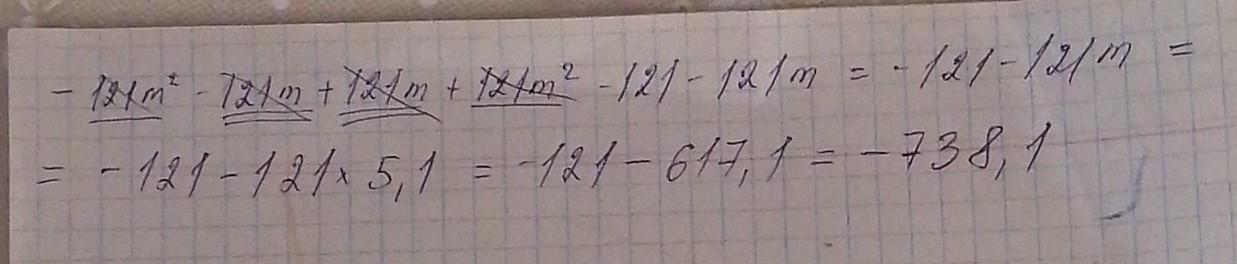 - 121m² - 121m + 121m + 121m² - 121 - 121m = - 121 - 121m =
= - 121 - 121 × 5,1 = - 121 - 617,1 = - 738,1